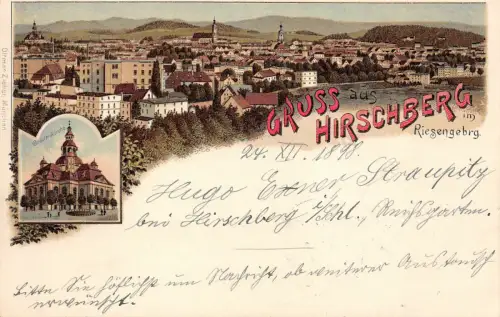 GRUSS aus
HIRSCHBERG
im
Riesengebrg.
Gnadenkirche
24. XII. 1898.
Hugo Exner Straupitz
bei Hirschberg i/Schl., Reifsgarten.
Bitte Sie höflichst um Nachricht, ob weiterer Austausch
erwünscht.